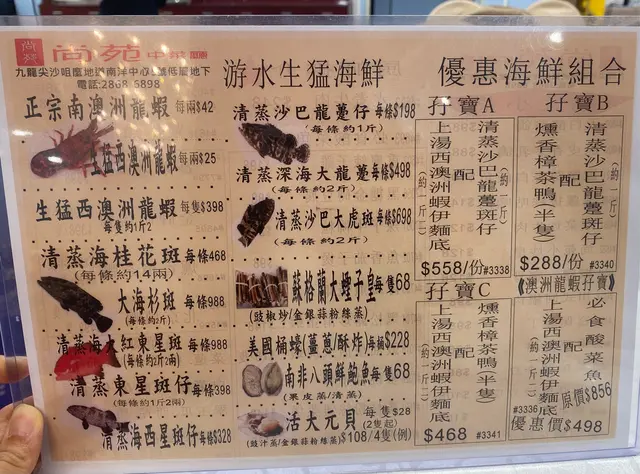 尚苑
尚苑中菜廳
電話:2868 6898
游水生猛海鮮
優惠海鮮組合
正宗南澳洲龍蝦 每兩$42
生猛西澳洲龍蝦 每兩$25
生猛西澳洲龍蝦 每隻$398
每隻約1斤2
清蒸海桂花斑 每條468
(每條約14兩)
大海杉斑 每條988
(每條約2斤)
清蒸海大紅東星斑 每條988
(每條約2斤2兩)
清蒸東星斑仔 每條398
(每條約1斤2兩)
清蒸海西星斑仔 每條$328
清蒸沙巴龍躉仔 每條$198
(每條約1斤)
清蒸深海大龍躉 每條$498
(每條約2斤)
清蒸沙巴大虎斑 每條$698
(每條約2斤)
蘇格蘭大蟶子皇 每隻68
(豉椒炒/金銀蒜粉絲蒸)
美國桶蠔(薑蔥/酥炸) 每桶$228
南非八頭鮮鮑魚 每隻68
(果皮蒸/清蒸)
活大元貝 每隻$28
(2隻起)
(豉汁蒸/金銀蒜粉絲蒸) $108/4隻(例)
孖寶A
清蒸沙巴龍躉斑仔
(約一斤)
配
上湯西澳洲蝦伊麵底
(約一斤二)
$558/份 #3338
孖寶B
清蒸沙巴龍躉斑仔
(約一斤)
配
燻香樟茶鴨(半隻)
$288/份 #3340
孖寶C
燻香樟茶鴨(半隻)
配
上湯西澳洲蝦伊麵底
(約一斤二)
$468 #3341
《澳洲龍蝦孖寶》
必食酸菜魚
配
上湯西澳洲蝦伊麵底
(約一斤二)
#3336
原價$856
優惠價$498